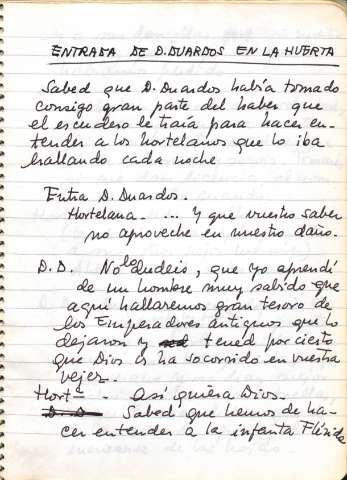 ENTRADA DE D. DUARDOS EN LA HUERTA
Sabed que D. Duardos había tomado
consigo gran parte del haber que
el escudero le traía para hacer en-
tender a los hortelanos que lo iba
hallando cada noche
Entra D. Duardos.
Hortelana - ... Y que vuestro saber
no aproveche en nuestro daño.
D. D. No lo dudeis, que yo aprendí
de un hombre muy sabido que
aquí hallaremos gran tesoro de
los Emperadores antiguos que lo
dejaron y tened por cierto
que Dios os ha socorrido en vuestra
vejez.
Hortª - Así quiera Dios.
D. D. Sabed que hemos de ha-
cer entender a la infanta Flérida